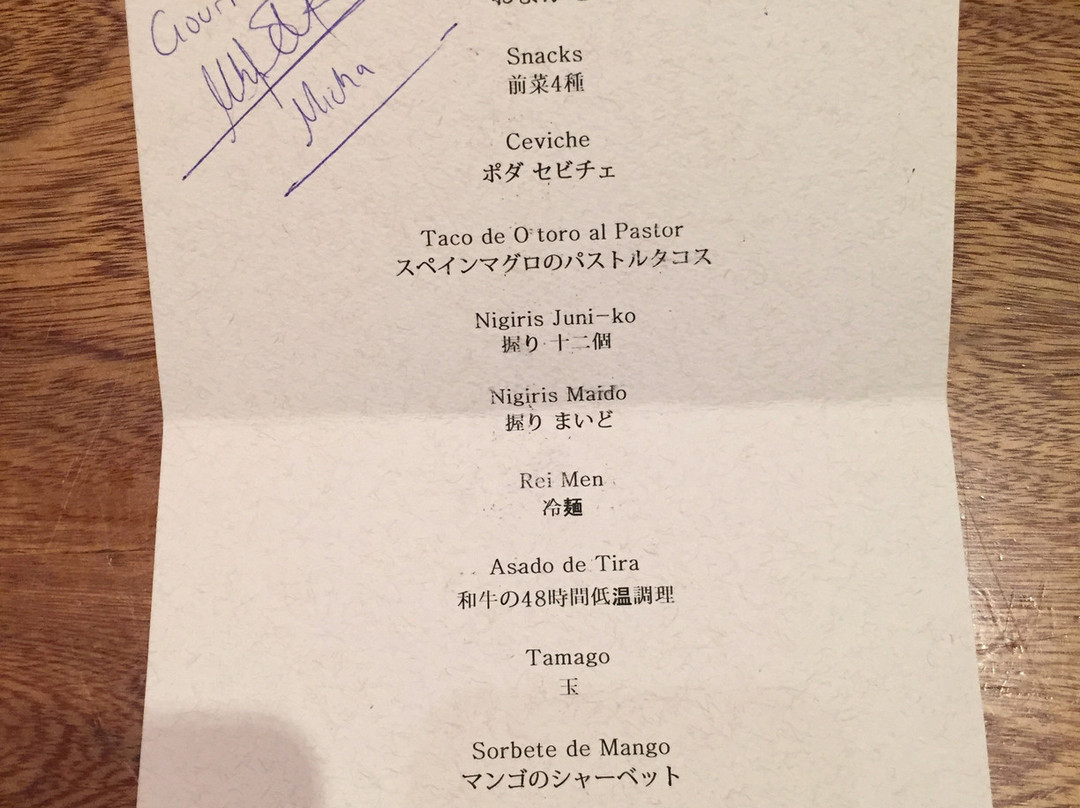 Micha
Snacks
前菜4種
Ceviche
ポダ セビチェ
Taco de O'toro al Pastor
スペインマグロのパストルタコス
Nigiris Juni-ko
握り 十二個
Nigiris Maido
握り まいど
Rei Men
冷麺
Asado de Tira
和牛の48時間低温調理
Tamago
玉
Sorbete de Mango
マンゴのシャーベット